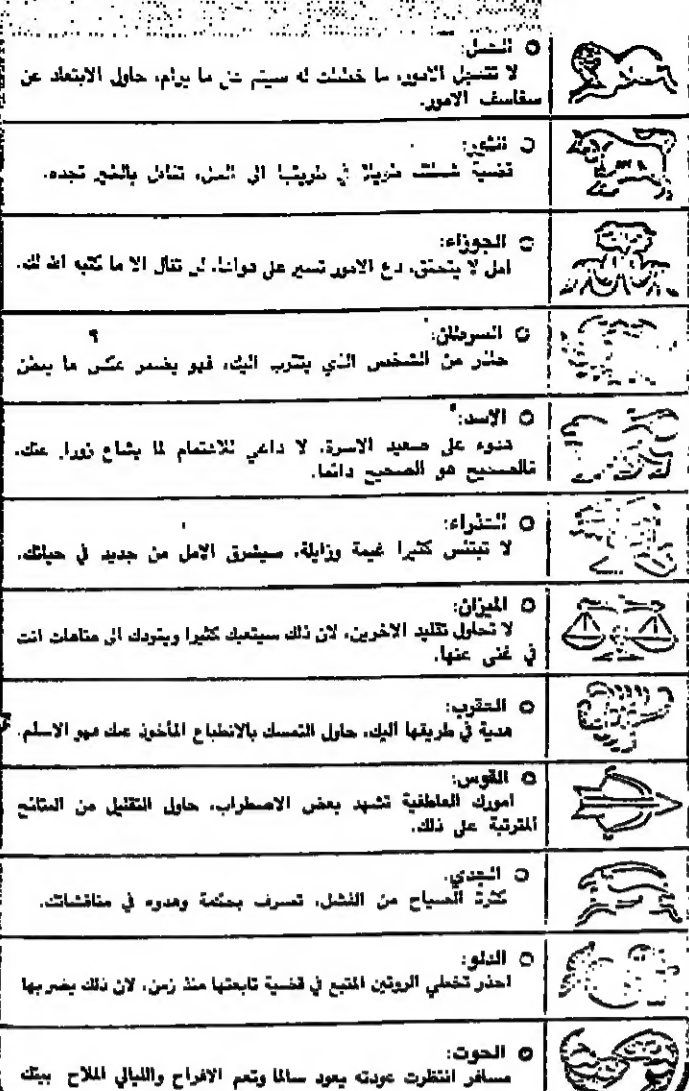 ○ الحمل:
لا تتعجل الامور، ما خططت له سيتم على ما يرام، حاول الابتعاد عن
سفاسف الامور.
○ الثور:
قضية شغلتك طويلا في طريقها الى الحل، تفاءل بالخير تجده.
○ الجوزاء:
امل لا يتحقق، دع الامور تسير على هواها، لن تنال الا ما كتبه الله لك.
○ السرطان:
حذار من الشخص الذي يتقرب اليك، فهو يضمر عكس ما يعلن
○ الاسد:
هدوء على صعيد الاسرة، لا داعي للاهتمام لما يشاع زورا عنك،
فالصحيح هو الصحيح دائما.
○ العذراء:
لا تبتئس كثيرا غيمة وزايلة، سيشرق الامل من جديد في حياتك.
○ الميزان:
لا تحاول تقليد الاخرين، لان ذلك سيتعبك كثيرا ويقودك الى متاهات انت
في غنى عنها.
○ العقرب:
هدية في طريقها اليك، حاول التمسك بالانطباع المأخوذ عنك فهو الاسلم.
○ القوس:
امورك العاطفية تشهد بعض الاضطراب، حاول التقليل من النتائج
المترتبة على ذلك.
○ الجدي:
كثرة الصياح من الفشل، تصرف بحكمة وهدوء في مناقشاتك.
○ الدلو:
احذر تخطي الروتين المتبع في قضية تابعتها منذ زمن، لان ذلك يضر بها
○ الحوت:
مسافر انتظرت عودته يعود سالما وتعم الافراح والليالي الملاح بيتك